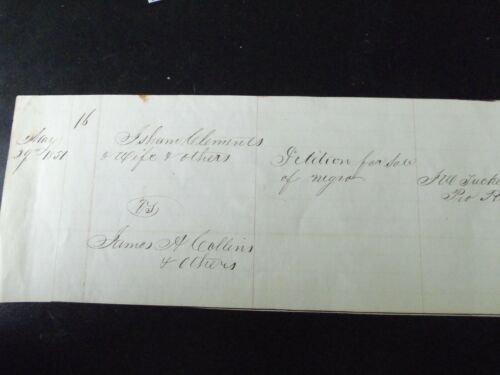 16
May
29th 1851
Isham Clements
& Wife & others
VS
James A Collins
& Others
Petition for Sale
of negro
J W Tucke
Pro